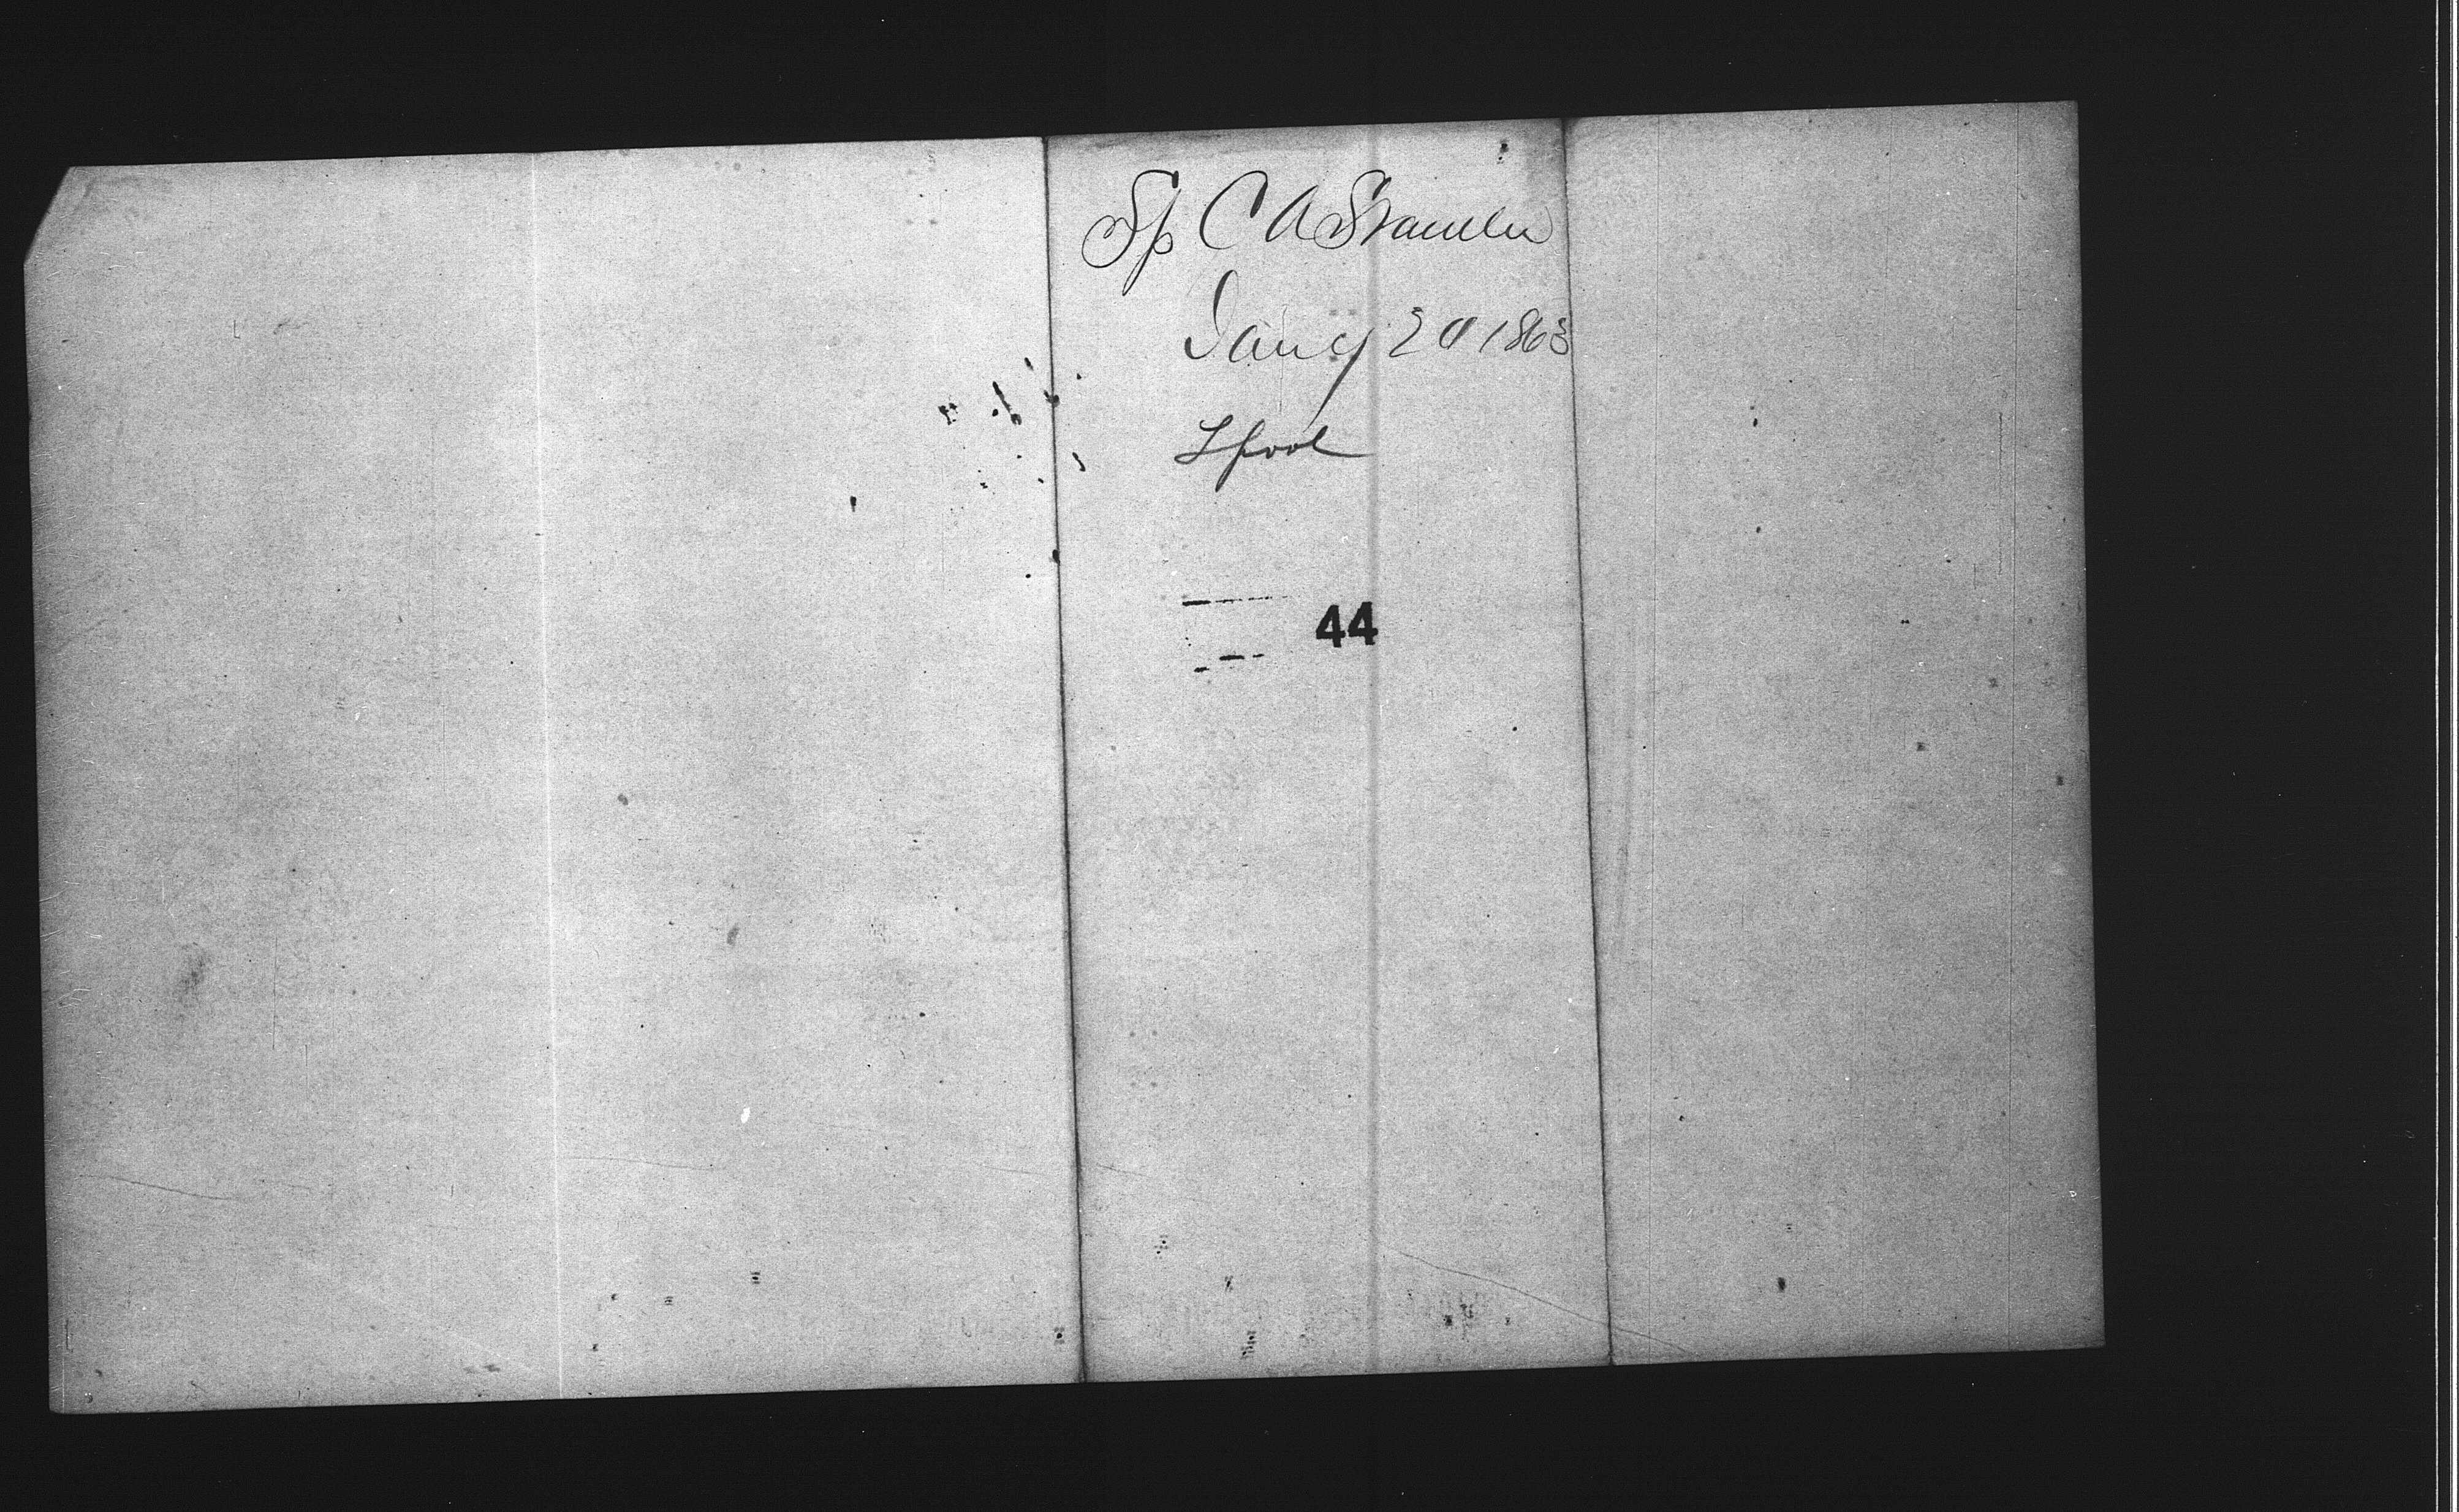 Sp C A Stamler
Jany 20 1863
Lpool
44